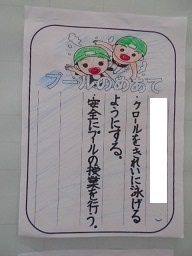 プールのめあて
・クロールをきれいに泳げる
ようにする。
・安全にプールの授業を行う。